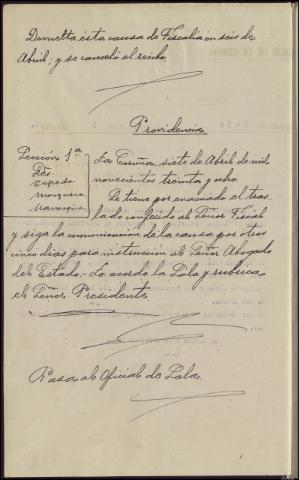 Devuelta esta causa de Fiscalia en seis de
Abril; y se canceló el recibo.
Providencia
Sección 1ª
Sres.
Cepeda
Mosquera
La Coruña siete de Abril de mil
novecientos treinta y ocho.
Se tiene por evacuado el tras
lado conferido al Señor Fiscal
y siga la comunicación de la causa por otros
cinco dias para instrucción al Señor Abogado
del Estado. Lo acordó la Sala y rubrica
el Señor Presidente.
Pasa al Oficial de Sala.